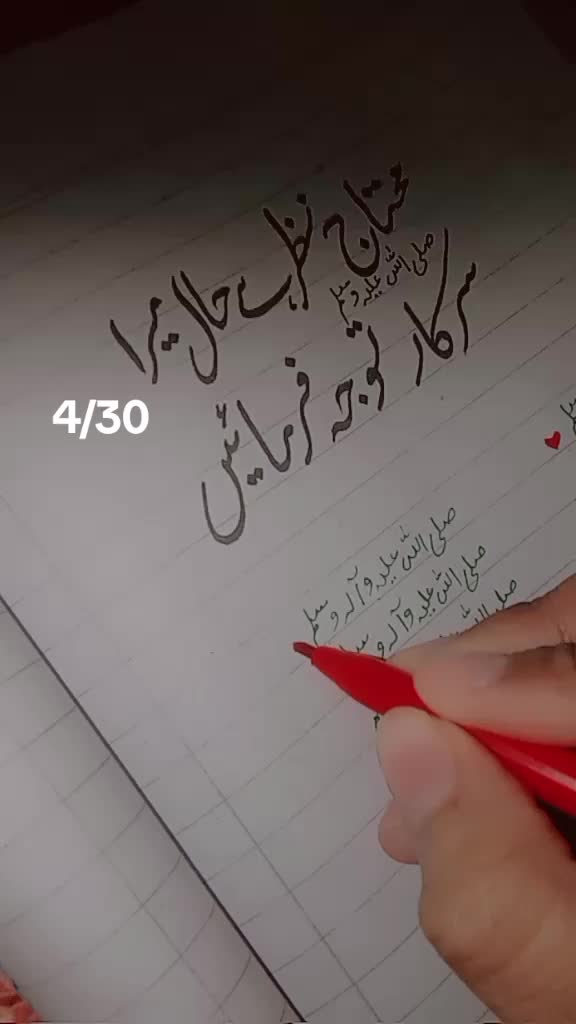 محتاج نظر ہے حال میرا
صلی اللہ علیہ وسلم
سرکار توجہ فرمائیں
4/30
صلی اللہ علیہ وآلہ وسلم
صلی اللہ علیہ وآلہ و
صلی اللہ